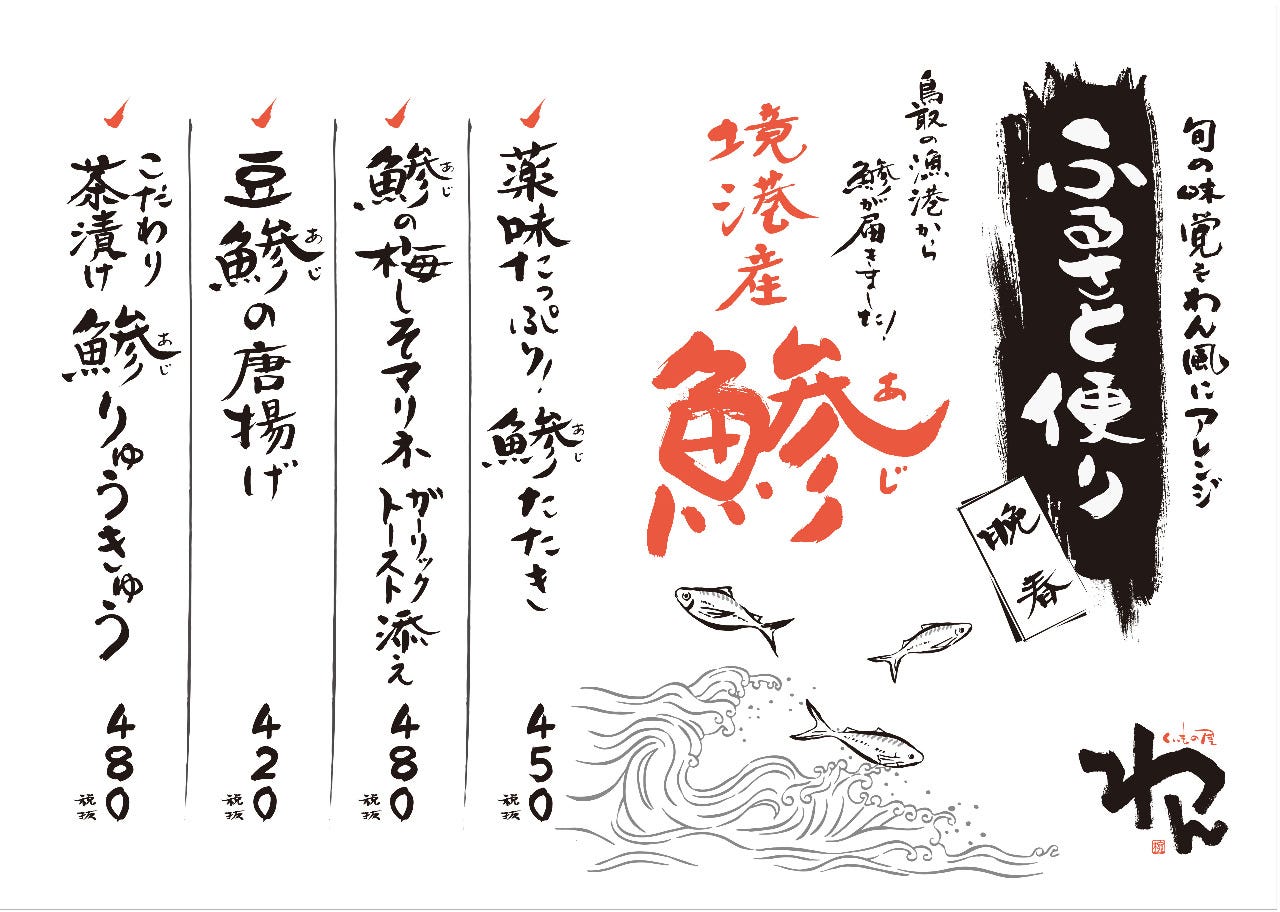 旬の味覚をわん風にアレンジ
ふるさと便り
晩春
鳥取の漁港から
鯵が届きました!
境港産
鯵
あじ
薬味たっぷり!鯵たたき
あじ
450
税抜
鯵の梅しそマリネ
あじ
ガーリック
トースト
添え
480
税抜
豆鯵の唐揚げ
あじ
420
税抜
こだわり
茶漬け
鯵りゅうきゅう
あじ
480
税抜
くいもの屋
わん